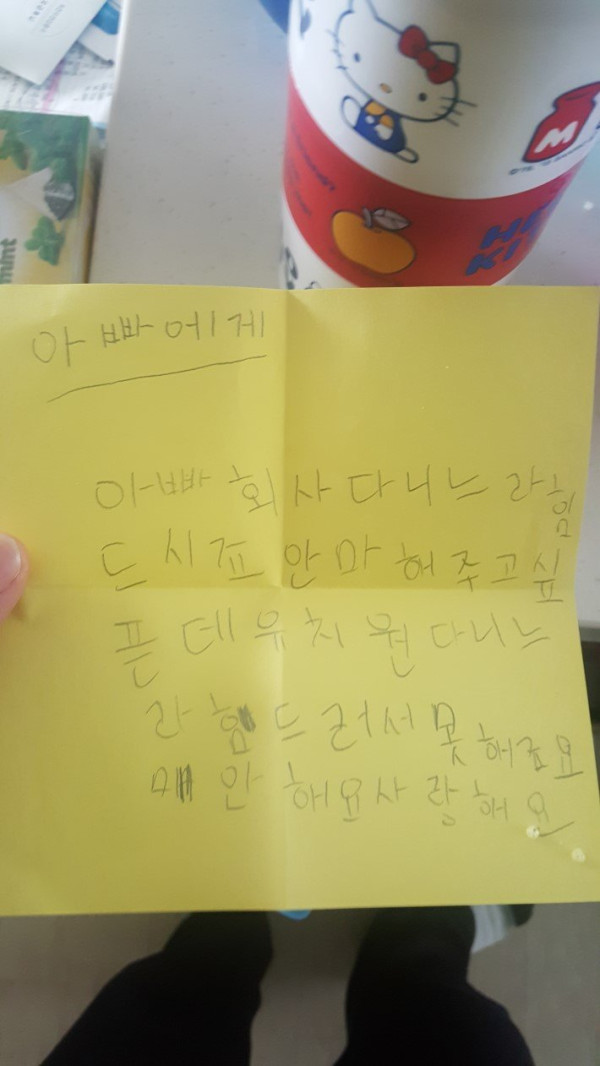 mint
M
HE
KI
아빠에게
아빠 회사다니느라힘
드시죠 안마 해주고싶
픈데유치원다니느
라 힘드러서 못해죠요
매안해요사랑해요